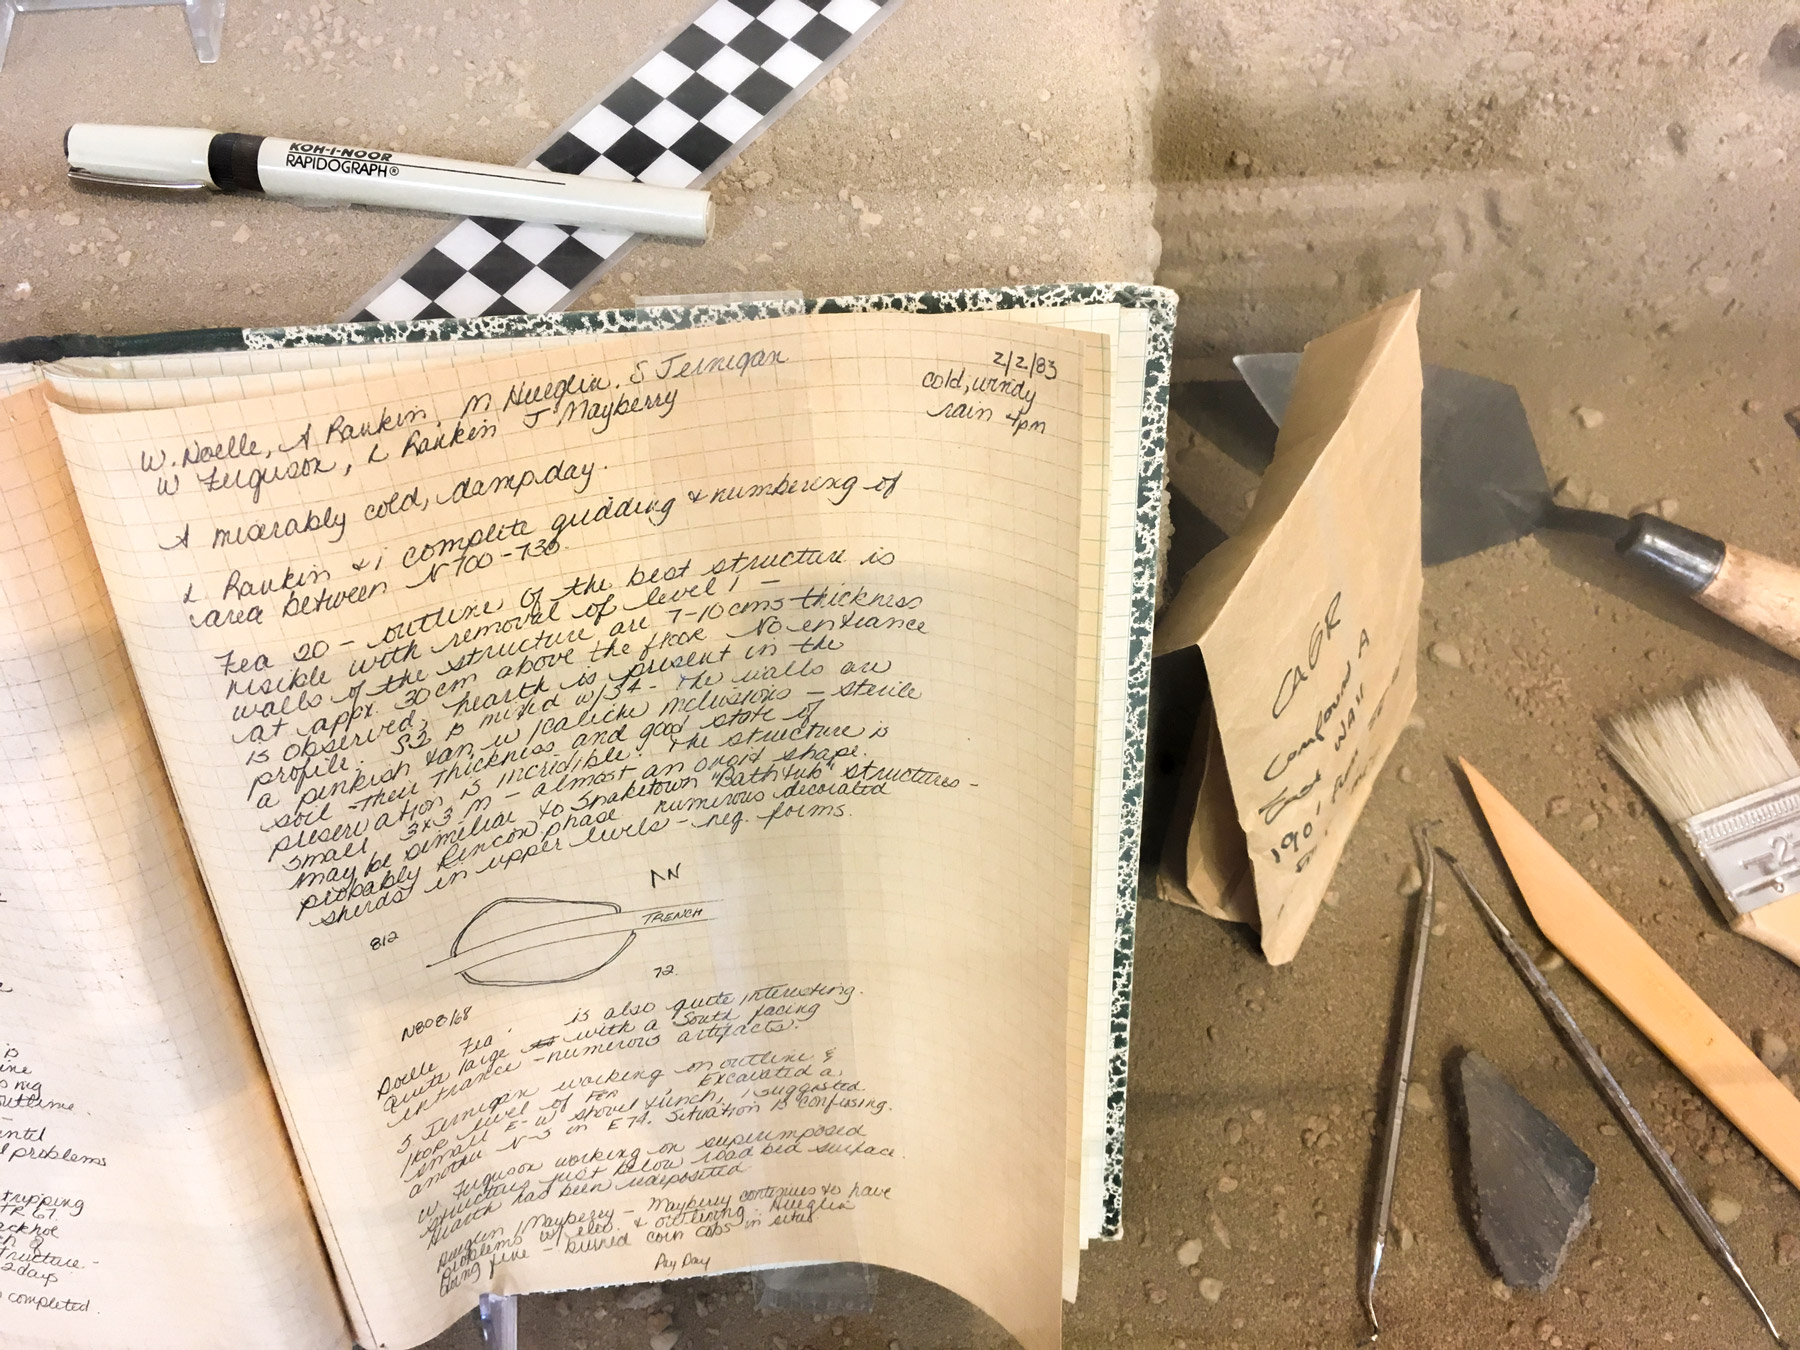 KOH-I-NOOR
RAPIDOGRAPH®
2/2/83
cold, windy
rain 4pm
W. Noelle, A Rankin, M Hueglin, S Jernigan
W Ferguson, L Rankin J Mayberry
A miserably cold, damp day.
L Rankin & i complete gridding & numbering of
area between N700-730.
Fea 20 - outline of the best structure is
visible with removal of level 1 -
walls of the structure are 7-10 cms thickness
at appx. 30cm above the floor No entrance
is observed, hearth is present in the
profile. S3 is mixed w/S4. The walls are
a pinkish tan w/caliche inclusions - sterile
soil - Their thickness and good state of
preservation is incredible. The structure is
small 3x3 m - almost an ovoid shape.
may be similiar to Snaketown "Bathtub" structures -
probably Rincon phase numerous decorated
sherds in upper levels - neg. forms.
N
TRENCH
812
72
N808/68
Noelle Fea is also quite interesting.
Quite large with a South facing
entrance - numerous artifacts.
S Jernigan working on outline &
floor level of Fea Excavated a
small E-W shovel trench, i suggested
another N-S in E74. Situation is confusing.
W. Ferguson working on superimposed
structures just below road bed surface.
Hearth had been redeposited
Mayberry - Mayberry continues to have
problems w/elev. & outlining. Hueglin
doing fine - burned corn cobs in situ.
Pay Day
outline.
problems
TR 67
backhoe
structure -
2 days
completed.
CAGR
Compound A
East Wall
2"